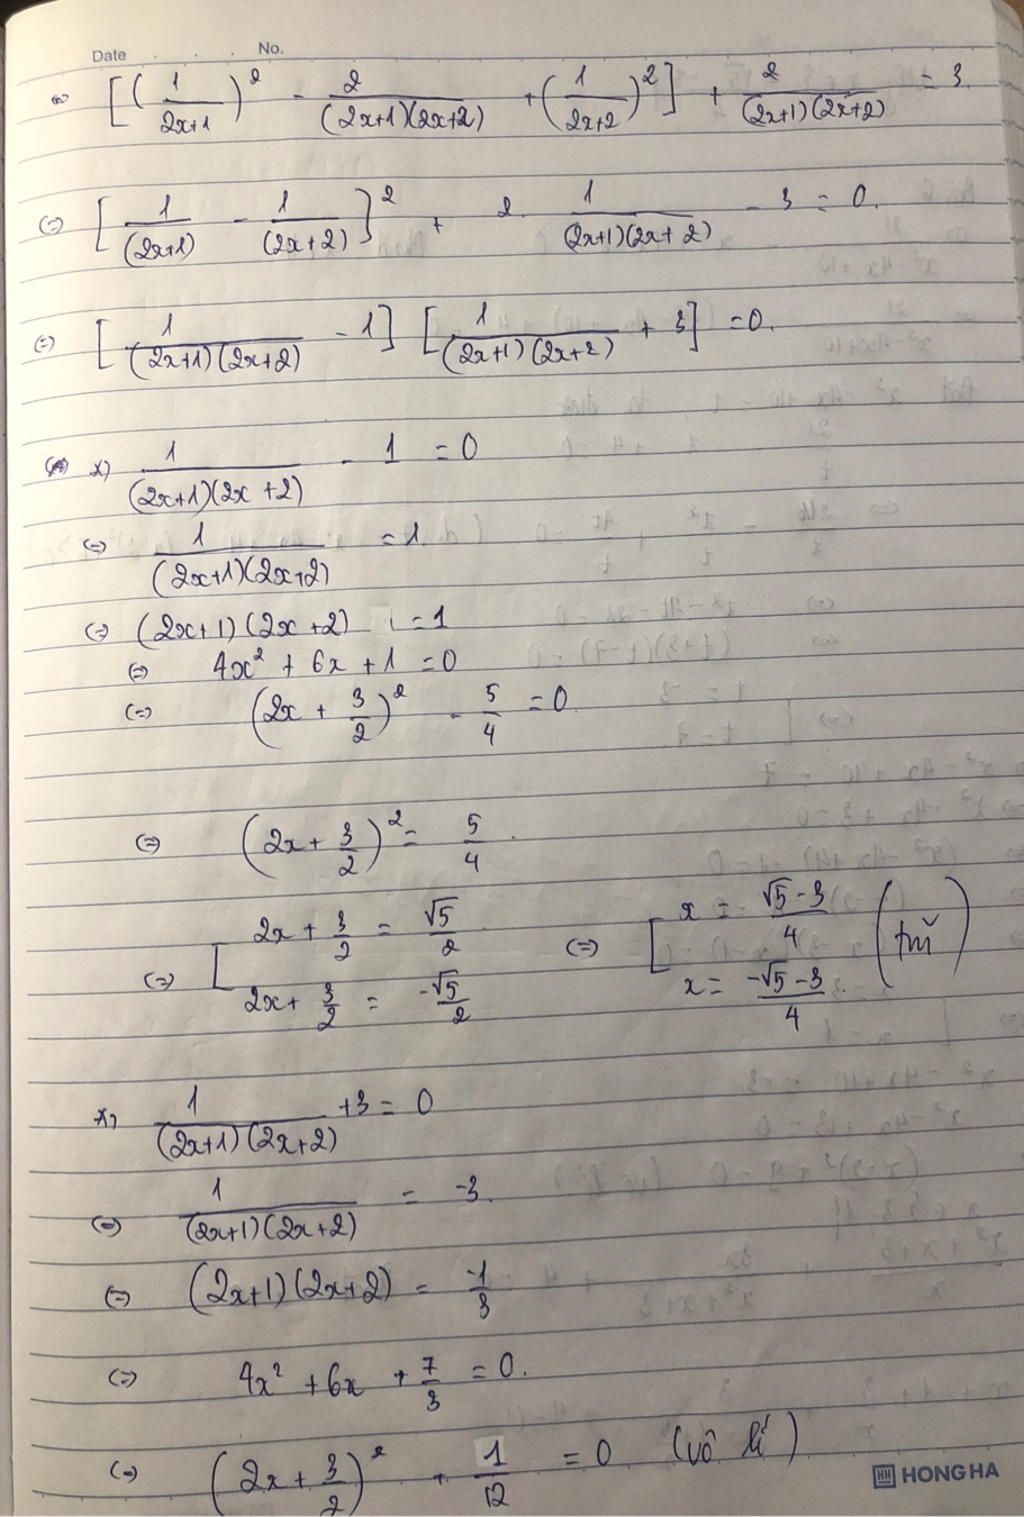 Date . . . . No.
⇔ [(1/(2x+1))² - 2/((2x+1)(2x+2)) + (1/(2x+2))²] + 2/((2x+1)(2x+2)) = 3.
(=) [1/(2x+1) - 1/(2x+2)]² + 2. 1/((2x+1)(2x+2)) - 3 = 0.
(=) [1/((2x+1)(2x+2)) - 1] [1/((2x+1)(2x+2)) + 3] = 0.
*) 1/((2x+1)(2x+2)) - 1 = 0
(=) 1/((2x+1)(2x+2)) = 1.
(=) (2x+1)(2x+2) = 1
(=) 4x² + 6x + 1 = 0
(=) (2x + 3/2)² - 5/4 = 0
(=) (2x + 3/2)² = 5/4.
(=) [ 2x + 3/2 = √5/2 (=) [ x = (√5-3)/4 (tm)
2x + 3/2 = -√5/2 x = (-√5-3)/4
*) 1/((2x+1)(2x+2)) + 3 = 0
(=) 1/((2x+1)(2x+2)) = -3.
(=) (2x+1)(2x+2) = -1/3
(=) 4x² + 6x + 7/3 = 0.
(=) (2x + 3/2)² + 1/12 = 0 (vô lí)
HH HONG HA